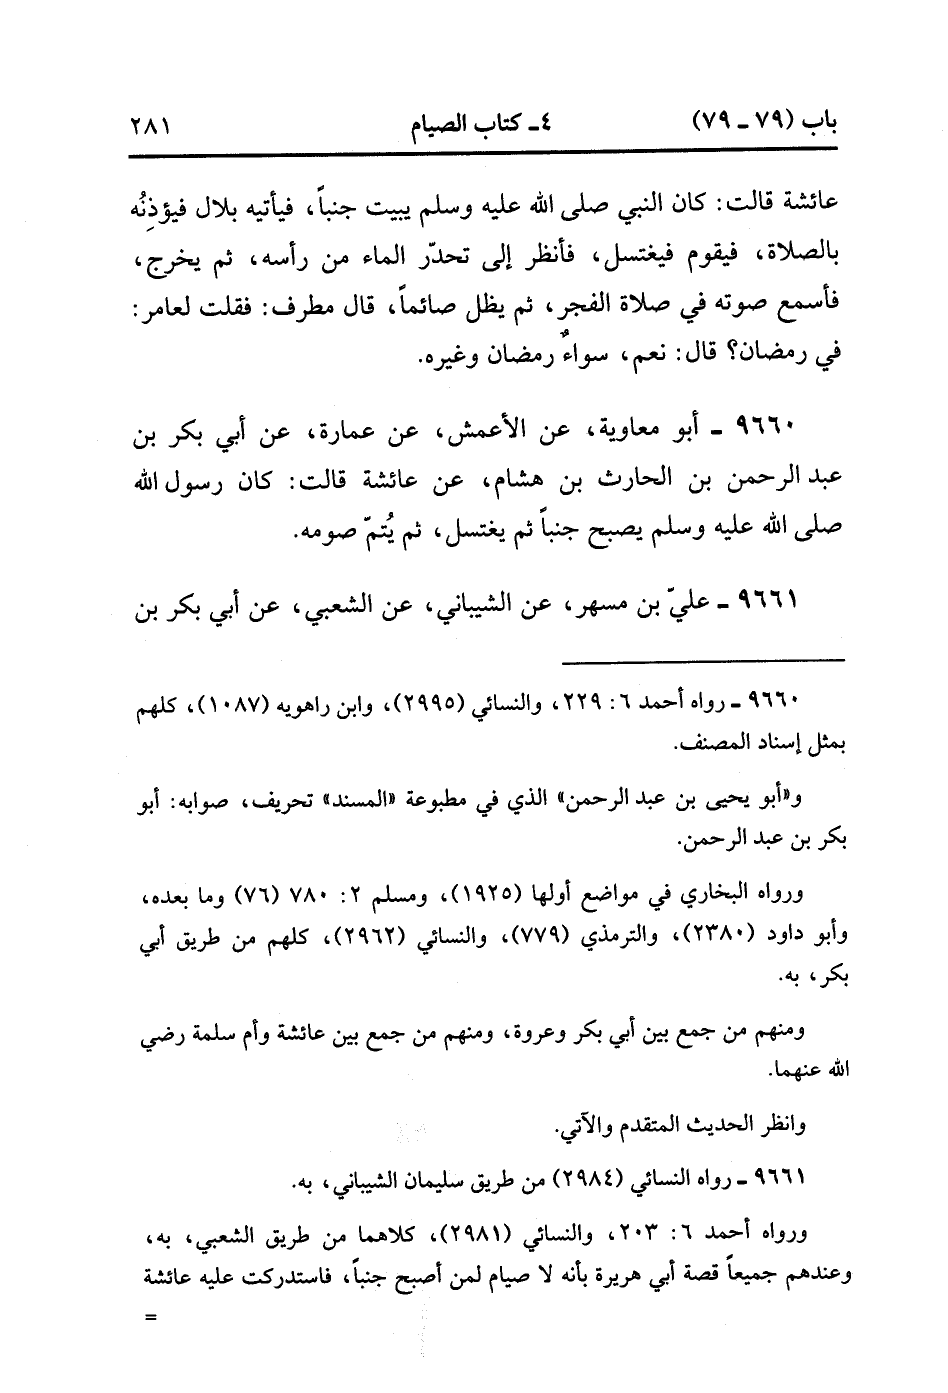 باب (٧٩ ـ ٧٩) ٤ـ كتاب الصيام ٢٨١
عائشة قالت: كان النبي صلى الله عليه وسلم يبيت جنباً، فيأتيه بلال فيؤذِنُه
بالصلاة، فيقوم فيغتسل، فأنظر إلى تحدّر الماء من رأسه، ثم يخرج،
فأسمع صوته في صلاة الفجر، ثم يظل صائماً، قال مطرف: فقلت لعامر:
في رمضان؟ قال: نعم، سواءٌ رمضان وغيره.
٩٦٦٠ ـ أبو معاوية، عن الأعمش، عن عمارة، عن أبي بكر بن
عبد الرحمن بن الحارث بن هشام، عن عائشة قالت: كان رسول الله
صلى الله عليه وسلم يصبح جنباً ثم يغتسل، ثم يُتمّ صومه.
٩٦٦١ ـ عليّ بن مسهر، عن الشيباني، عن الشعبي، عن أبي بكر بن
٩٦٦٠ ـ رواه أحمد ٦: ٢٢٩، والنسائي (٢٩٩٥)، وابن راهويه (١٠٨٧)، كلهم
بمثل إسناد المصنف.
و«أبو يحيى بن عبد الرحمن» الذي في مطبوعة «المسند» تحريف، صوابه: أبو
بكر بن عبد الرحمن.
ورواه البخاري في مواضع أولها (١٩٢٥)، ومسلم ٢: ٧٨٠ (٧٦) وما بعده،
وأبو داود (٢٣٨٠)، والترمذي (٧٧٩)، والنسائي (٢٩٦٢)، كلهم من طريق أبي
بكر، به.
ومنهم من جمع بين أبي بكر وعروة، ومنهم من جمع بين عائشة وأم سلمة رضي
الله عنهما.
وانظر الحديث المتقدم والآتي.
٩٦٦١ ـ رواه النسائي (٢٩٨٤) من طريق سليمان الشيباني، به.
ورواه أحمد ٦: ٢٠٣، والنسائي (٢٩٨١)، كلاهما من طريق الشعبي، به،
وعندهم جميعاً قصة أبي هريرة بأنه لا صيام لمن أصبح جنباً، فاستدركت عليه عائشة
=